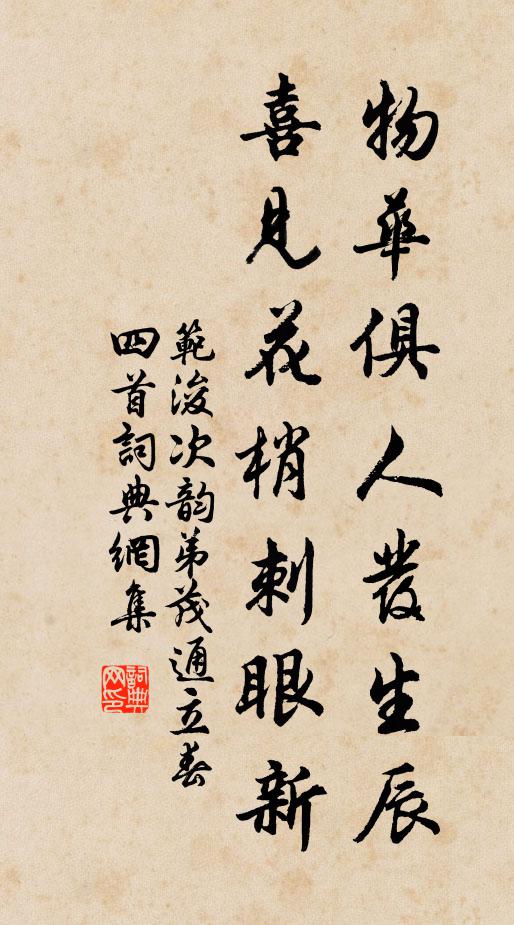 物華俱人發生辰
喜見花梢刺眼新
範浚次韵弟茂通立春
四首詞典網集
詞典
网印